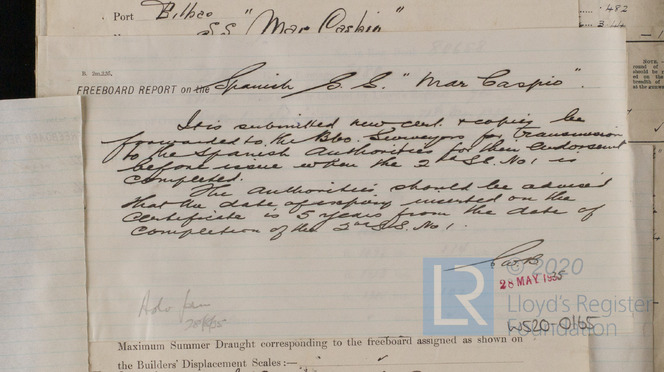 Port Bilbao
S.S. "Mar Caspio"
482
NOTE.
FREEBOARD REPORT on the Spanish S.S. "Mar Caspio".
It is submitted new cert. & copy be
forwarded to the Bbo. Surveyors for transmission
to the Spanish Authorities for their endorsement
before issue when the 2nd S.S. No 1 is
completed.
The Authorities should be advised
that the date of expiry inserted on the
Certificate is 5 years from the date of
completion of the 2nd S.S. No 1.
28 MAY 1935
© 2020
LR
Lloyd's Register
Foundation
W520-0165
Maximum Summer Draught corresponding to the freeboard assigned as shown on
the Builders' Displacement Scales:—